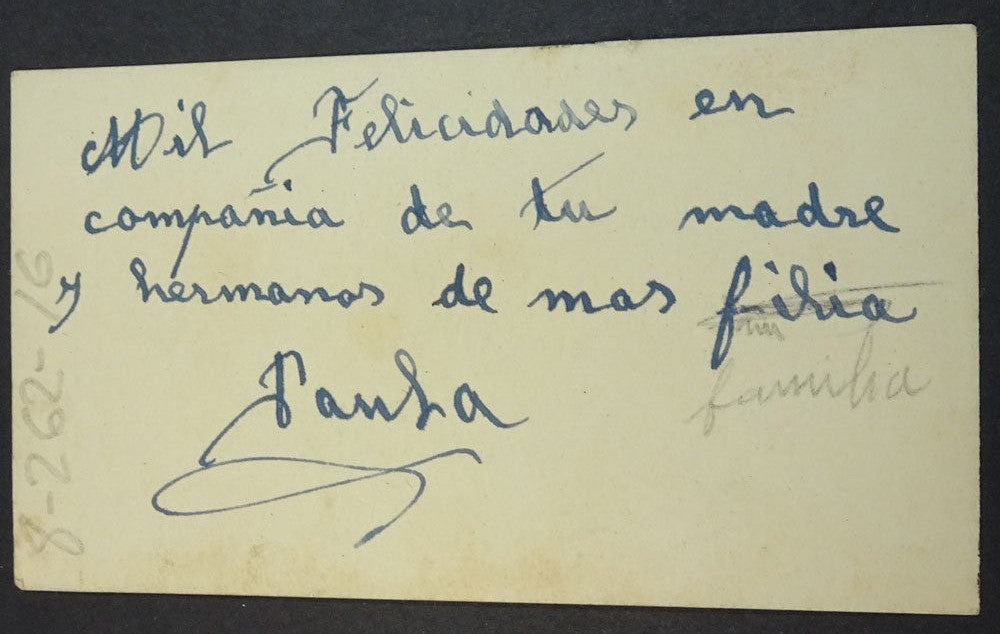 Mil Felicidades en
compañia de tu madre
y hermanos de mas filia
familia
Paula
8-262-16